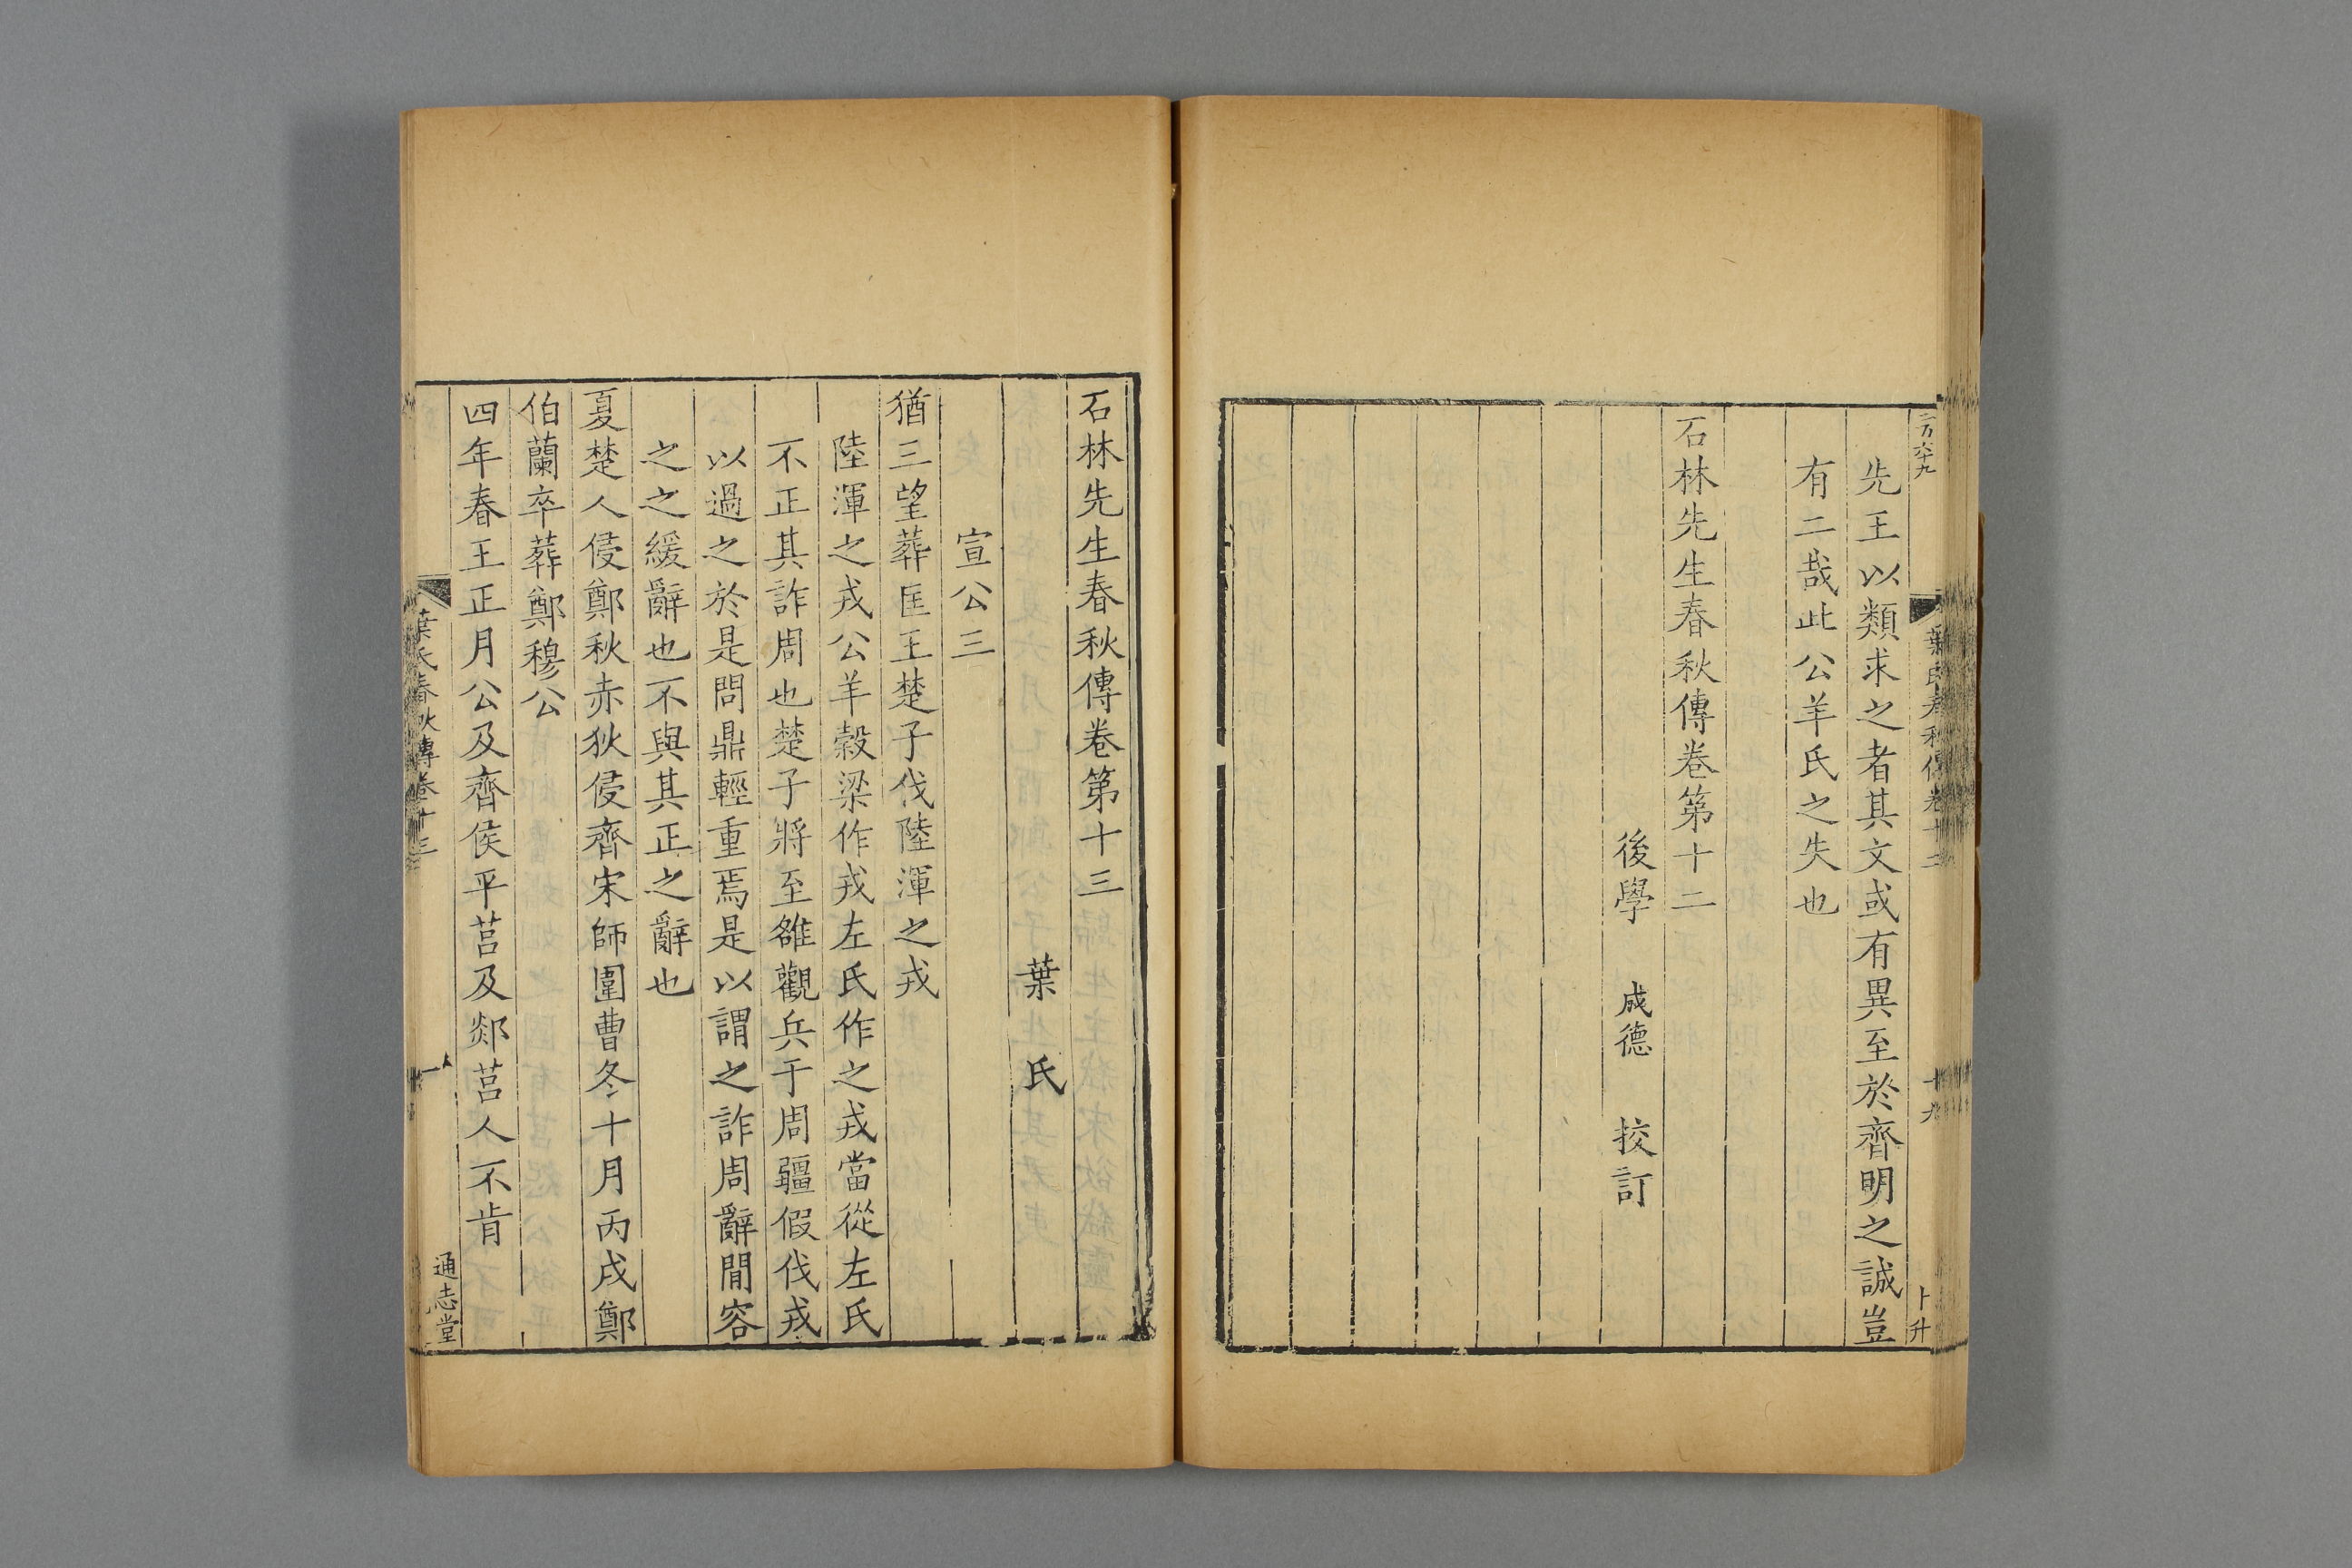 二万六十九
葉氏春秋傳卷十二
十九
卜升
先王以類求之者其文或有異至於齊明之誠豈
有二哉此公羊氏之失也
石林先生春秋傳卷第十二
後學 成德 挍訂
石林先生春秋傳卷第十三
葉氏
宣公三
猶三望葬匡王楚子伐陸渾之戎
陸渾之戎公羊榖梁作戎左氏作之戎當從左氏
不正其詐周也楚子將至雒觀兵于周疆假伐戎
以過之於是問鼎輕重焉是以謂之詐周辭閒容
之之緩辭也不與其正之辭也
夏楚人侵鄭秋赤狄侵齊宋師圍曹冬十月丙戌鄭
伯蘭卒葬鄭穆公
四年春王正月公及齊侯平莒及郯莒人不肯
葉氏春秋傳卷十三
一
通志堂